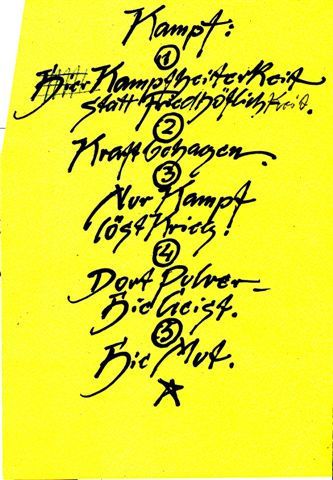 Kampf:
1
Hier Kampfheiterkeit
statt Friedhöflichkeit.
2
Kraftbehagen.
3
Nur Kampf
löst Krieg!
4
Dort Pulver-
Hie Geist.
5
Hie Mut.